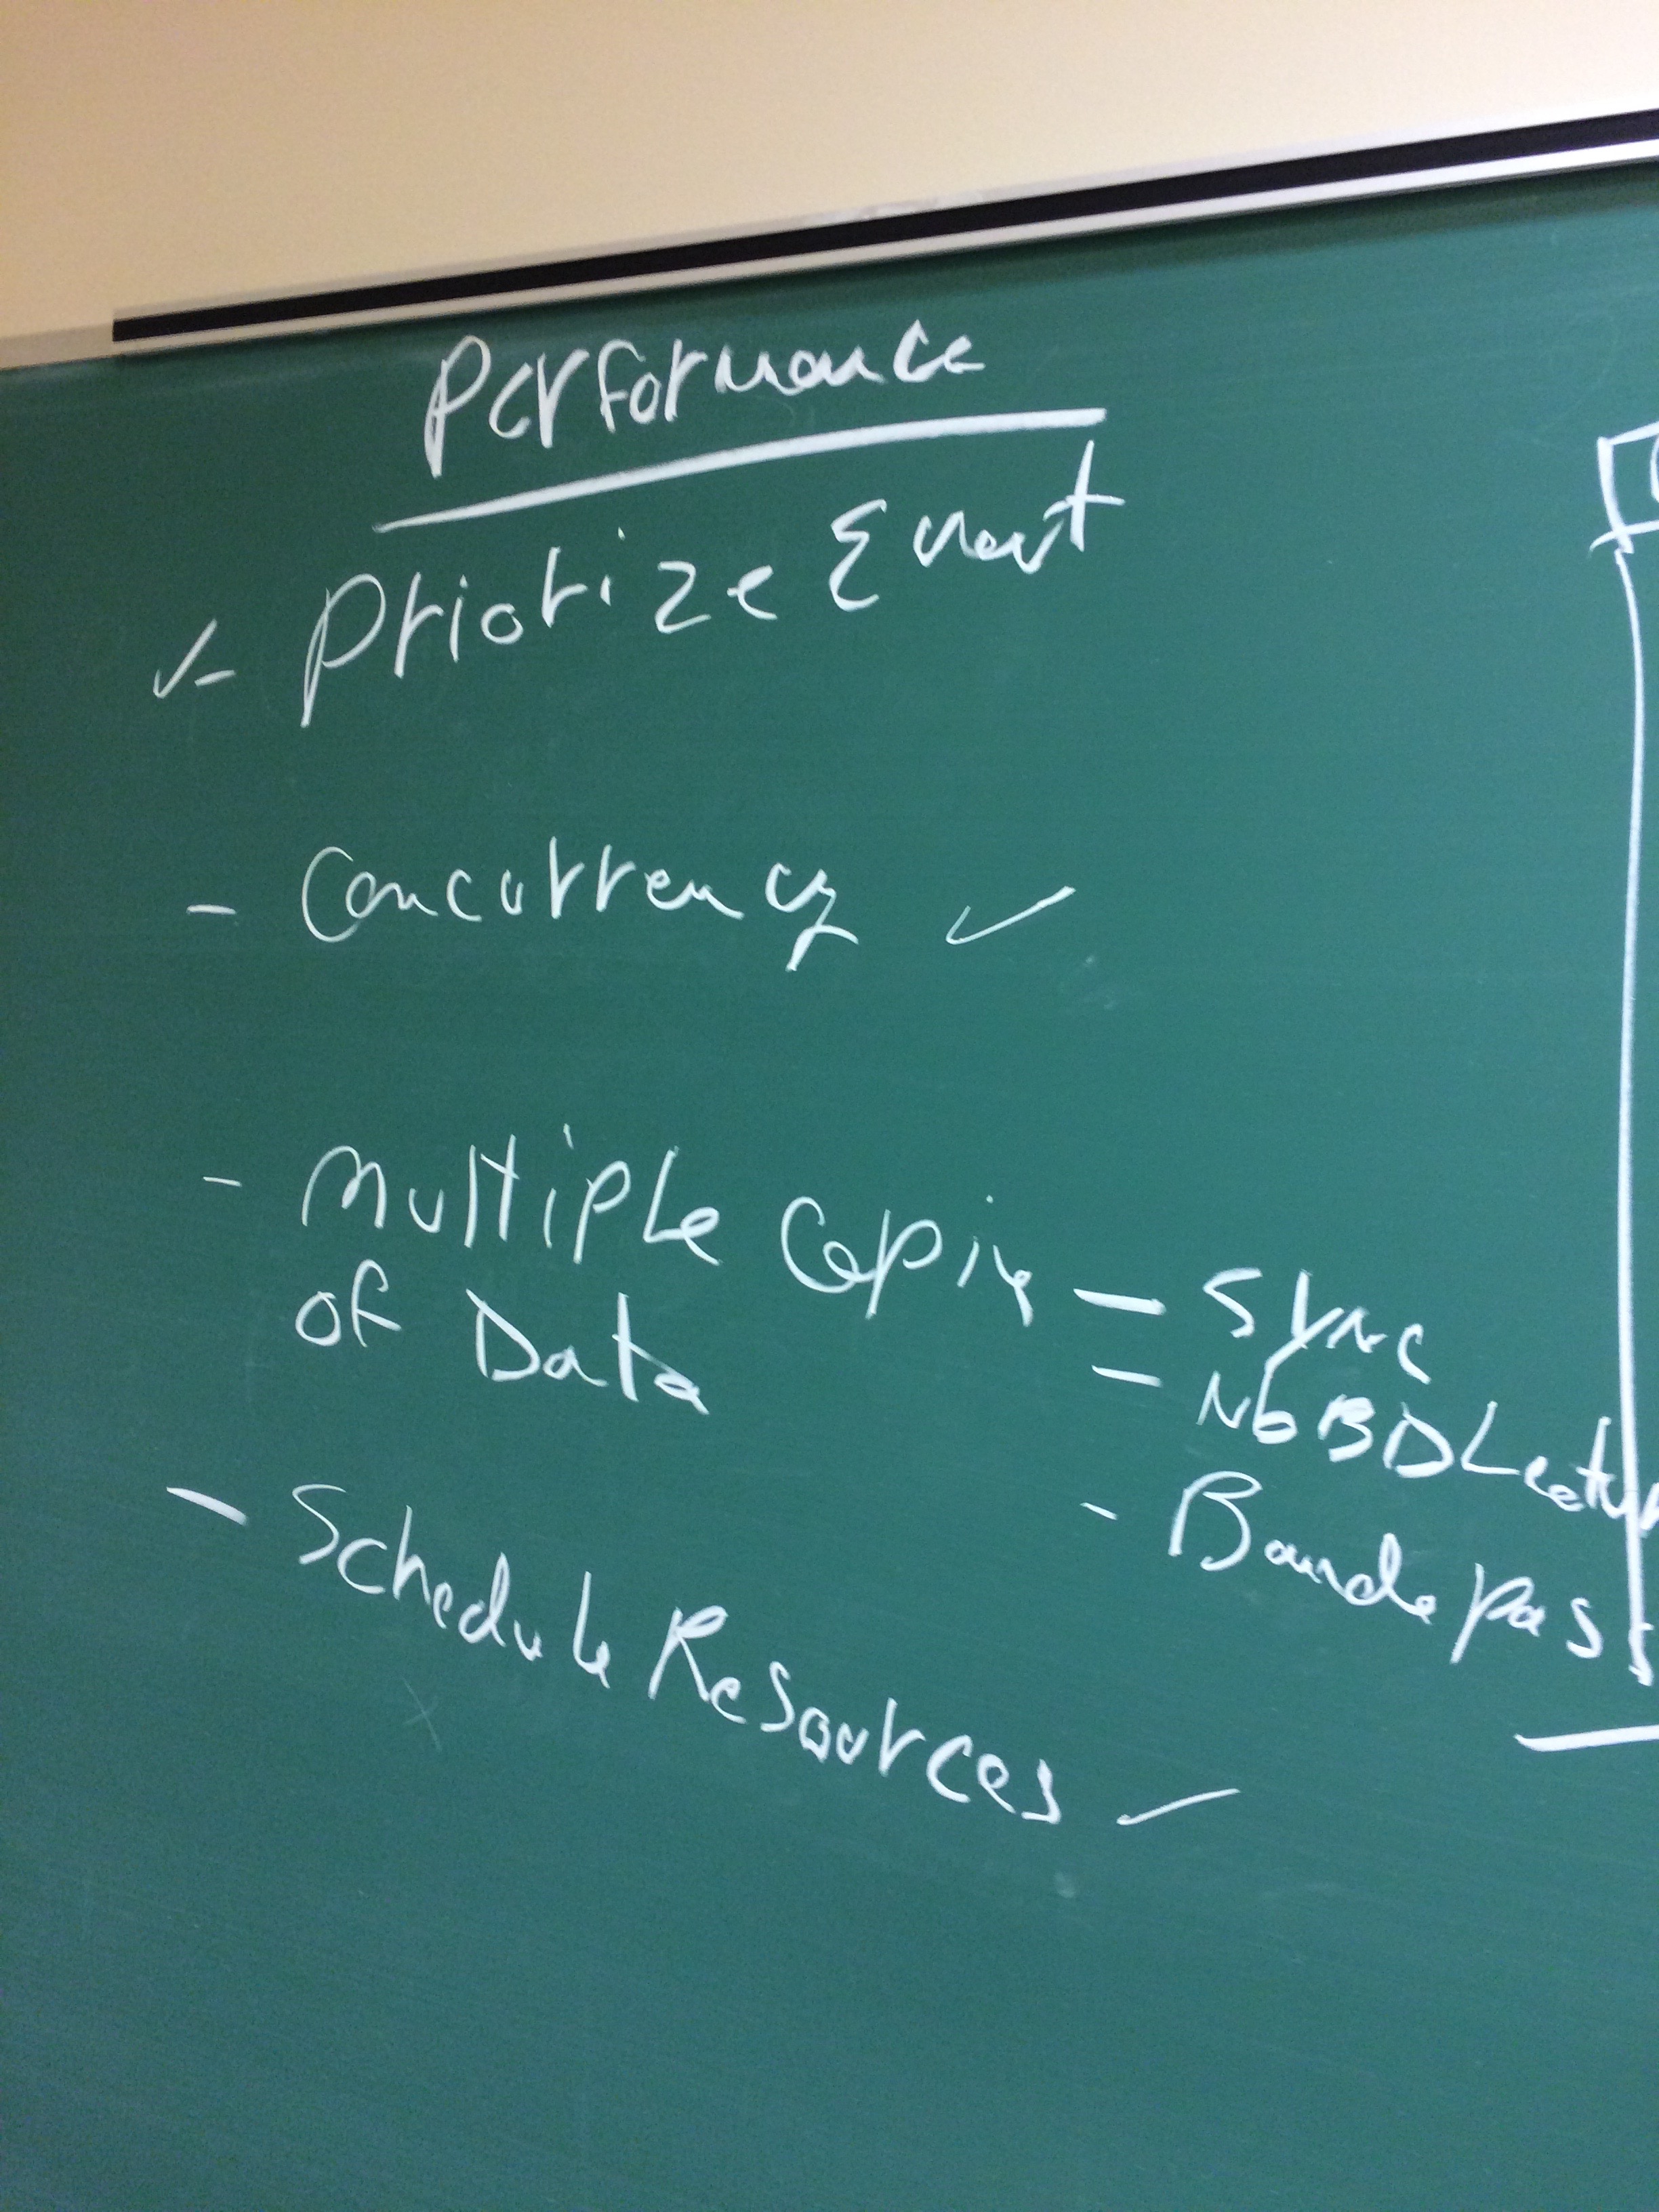 Performance
✓- Priorize Event
- Concurrency ✓
- Multiple Copies - Sync
of Data - Nb BD Lectur
- Bande pass
- Schedule Resources ✓